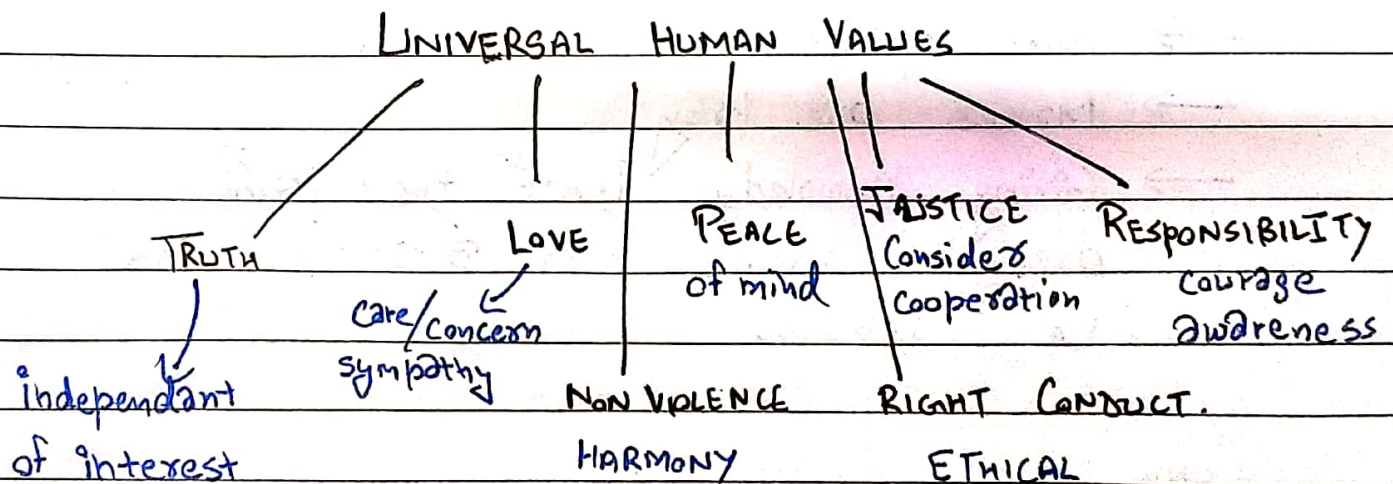 UNIVERSAL HUMAN VALUES
TRUTH
independant
of interest
LOVE
care/concern
sympathy
NON VIOLENCE
HARMONY
PEACE
of mind
JUSTICE
Consider
cooperation
RIGHT CONDUCT.
ETHICAL
RESPONSIBILITY
courage
awareness